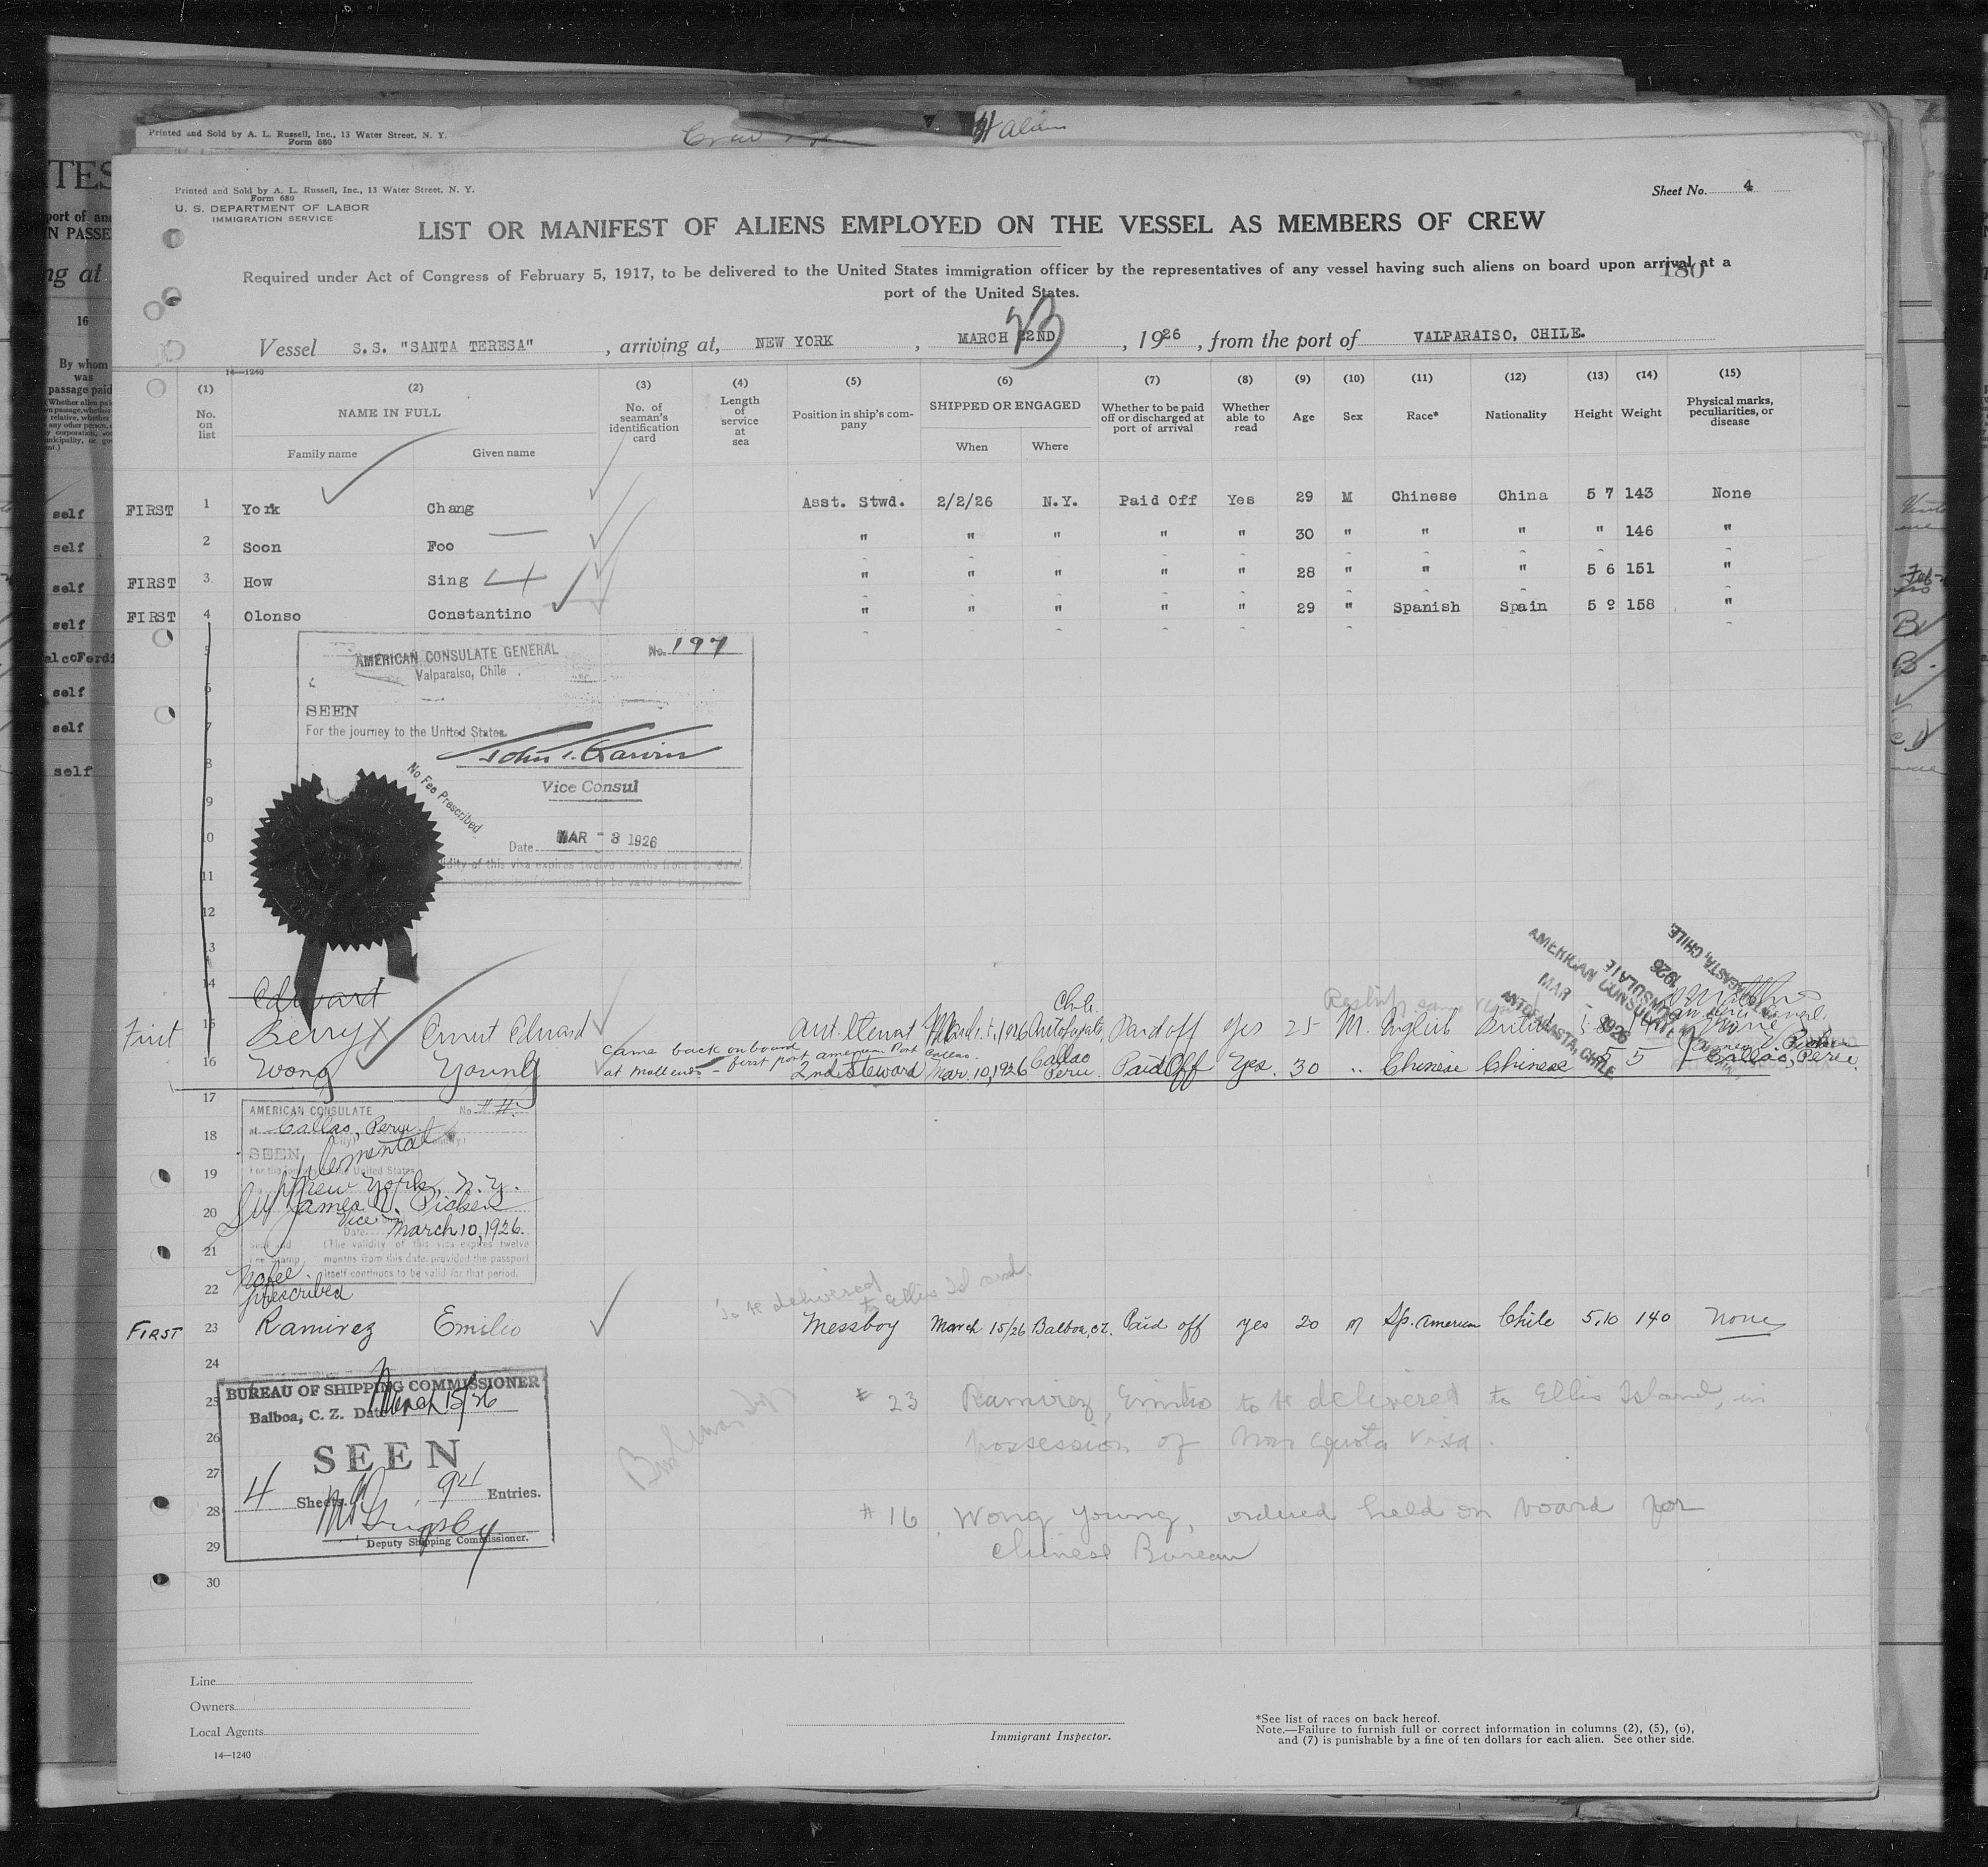 Printed and Sold by A. L. Russell, Inc., 13 Water Street, N. Y.
Form 680
Printed and Sold by A. L. Russell, Inc., 13 Water Street, N. Y.
Form 680
U. S. DEPARTMENT OF LABOR
IMMIGRATION SERVICE
Sheet No. 4
LIST OR MANIFEST OF ALIENS EMPLOYED ON THE VESSEL AS MEMBERS OF CREW
Required under Act of Congress of February 5, 1917, to be delivered to the United States immigration officer by the representatives of any vessel having such aliens on board upon arrival at a
port of the United States.
180
Vessel S.S. "SANTA TERESA" , arriving at, NEW YORK , MARCH 22ND 23 , 1926 , from the port of VALPARAISO, CHILE.
14—1240
(1) (2) (3) (4) (5) (6) (7) (8) (9) (10) (11) (12) (13) (14) (15)
No. on list
NAME IN FULL
Family name Given name
No. of seaman's identification card
Length of service at sea
Position in ship's company
SHIPPED OR ENGAGED
When Where
Whether to be paid off or discharged at port of arrival
Whether able to read
Age
Sex
Race*
Nationality
Height
Weight
Physical marks, peculiarities, or disease
FIRST 1 York Chang Asst. Stwd. 2/2/26 N.Y. Paid Off Yes 29 M Chinese China 5 7 143 None
2 Soon Foo " " " " " 30 " " " " 146 "
FIRST 3 How Sing " " " " " 28 " " " 5 6 151 "
FIRST 4 Olonso Constantino " " " " " 29 " Spanish Spain 5 9 158 "
5
6
7
8
9
10
11
12
13
14
AMERICAN CONSULATE GENERAL No. 197
Valparaiso, Chile
SEEN
For the journey to the United States.
Vice Consul
No Fee Prescribed
Date MAR - 3 1926
validity of this visa expires twelve months from this date,
Edward
First 15 Berry Ernest Edward Asst. Steward Antofagasta, Chile Paid off yes 25 M. English British None
AMERICAN CONSULATE
MAR 1926
ANTOFAGASTA, CHILE
came back on board
at Mollendo - first port american Port Callao
16 Wong Young 2nd Steward Mar. 10, 1926 Callao Peru Paid Off Yes. 30 " Chinese Chinese 5 5
Callao, Peru.
17
18
19
20
21
22
AMERICAN CONSULATE No.
at Callao, Peru.
SEEN
For the journey to the United States
Supplemental
New York, N.Y.
James V. Picken
Vice
Date March 10, 1926.
(The validity of this visa expires twelve
months from this date, provided the passport
itself continues to be valid for that period.
No fee
prescribed
To be delivered
to Ellis Island.
FIRST 23 Ramirez Emilio Messboy March 15/26 Balboa, C.Z. Paid off yes 20 M Sp. American Chile 5,10 140 None
24
25
26
27
28
29
30
BUREAU OF SHIPPING COMMISSIONER
Balboa, C. Z. Date March 15/26
SEEN
4 Sheets. 94 Entries.
Deputy Shipping Commissioner.
# 23 Ramirez, Emilio to be delivered to Ellis Island, in
possession of Non quota visa.
# 16 Wong Young, ordered held on board for
Chinese Bureau
Line
Owners
Local Agents
14—1240
Immigrant Inspector.
*See list of races on back hereof.
Note.—Failure to furnish full or correct information in columns (2), (5), (6),
and (7) is punishable by a fine of ten dollars for each alien. See other side.
16
By whom
was
passage paid
self
self
self
self
self
self
self